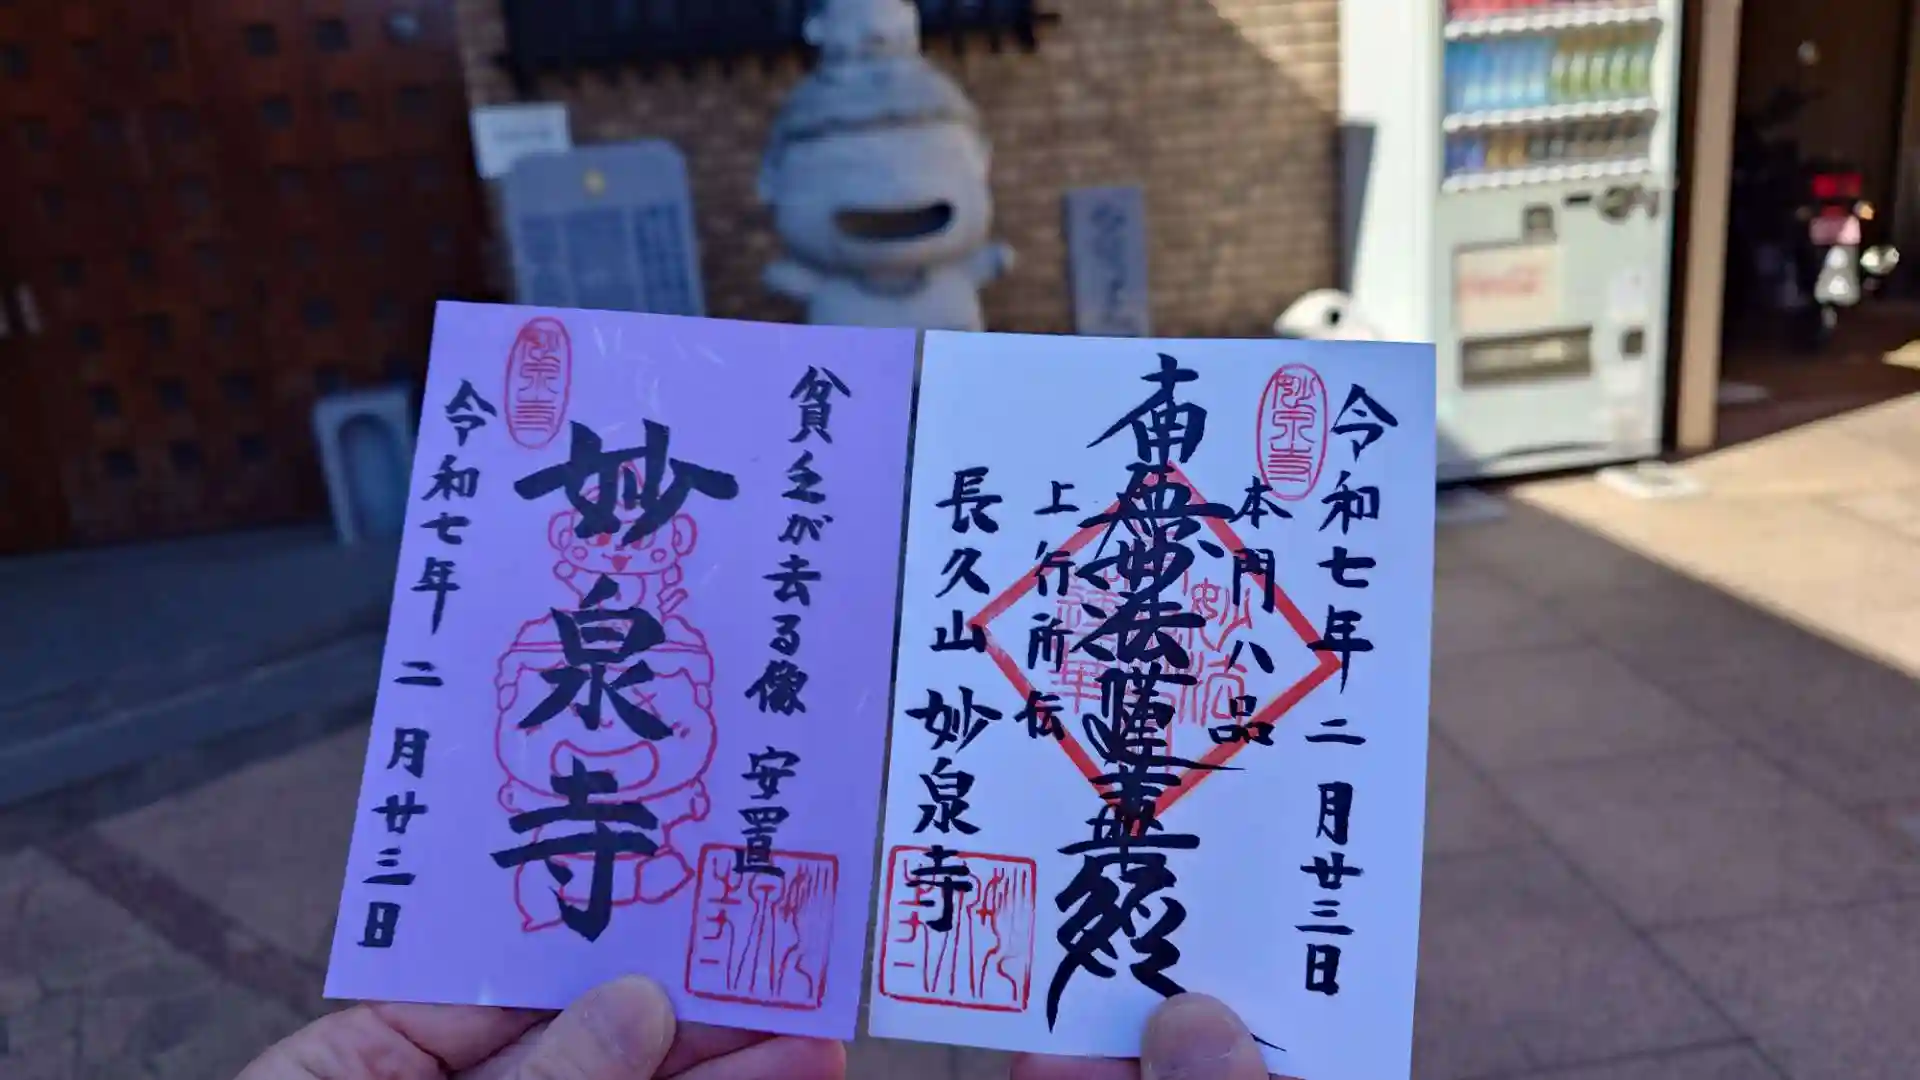 貧乏が去る像 安置
妙泉寺
令和七年 二月廿三日
妙泉寺
妙泉寺
令和七年 二月廿三日
本門八品
南無妙法蓮華経
上行所伝
長久山 妙泉寺
妙泉寺
妙泉寺
妙法蓮華